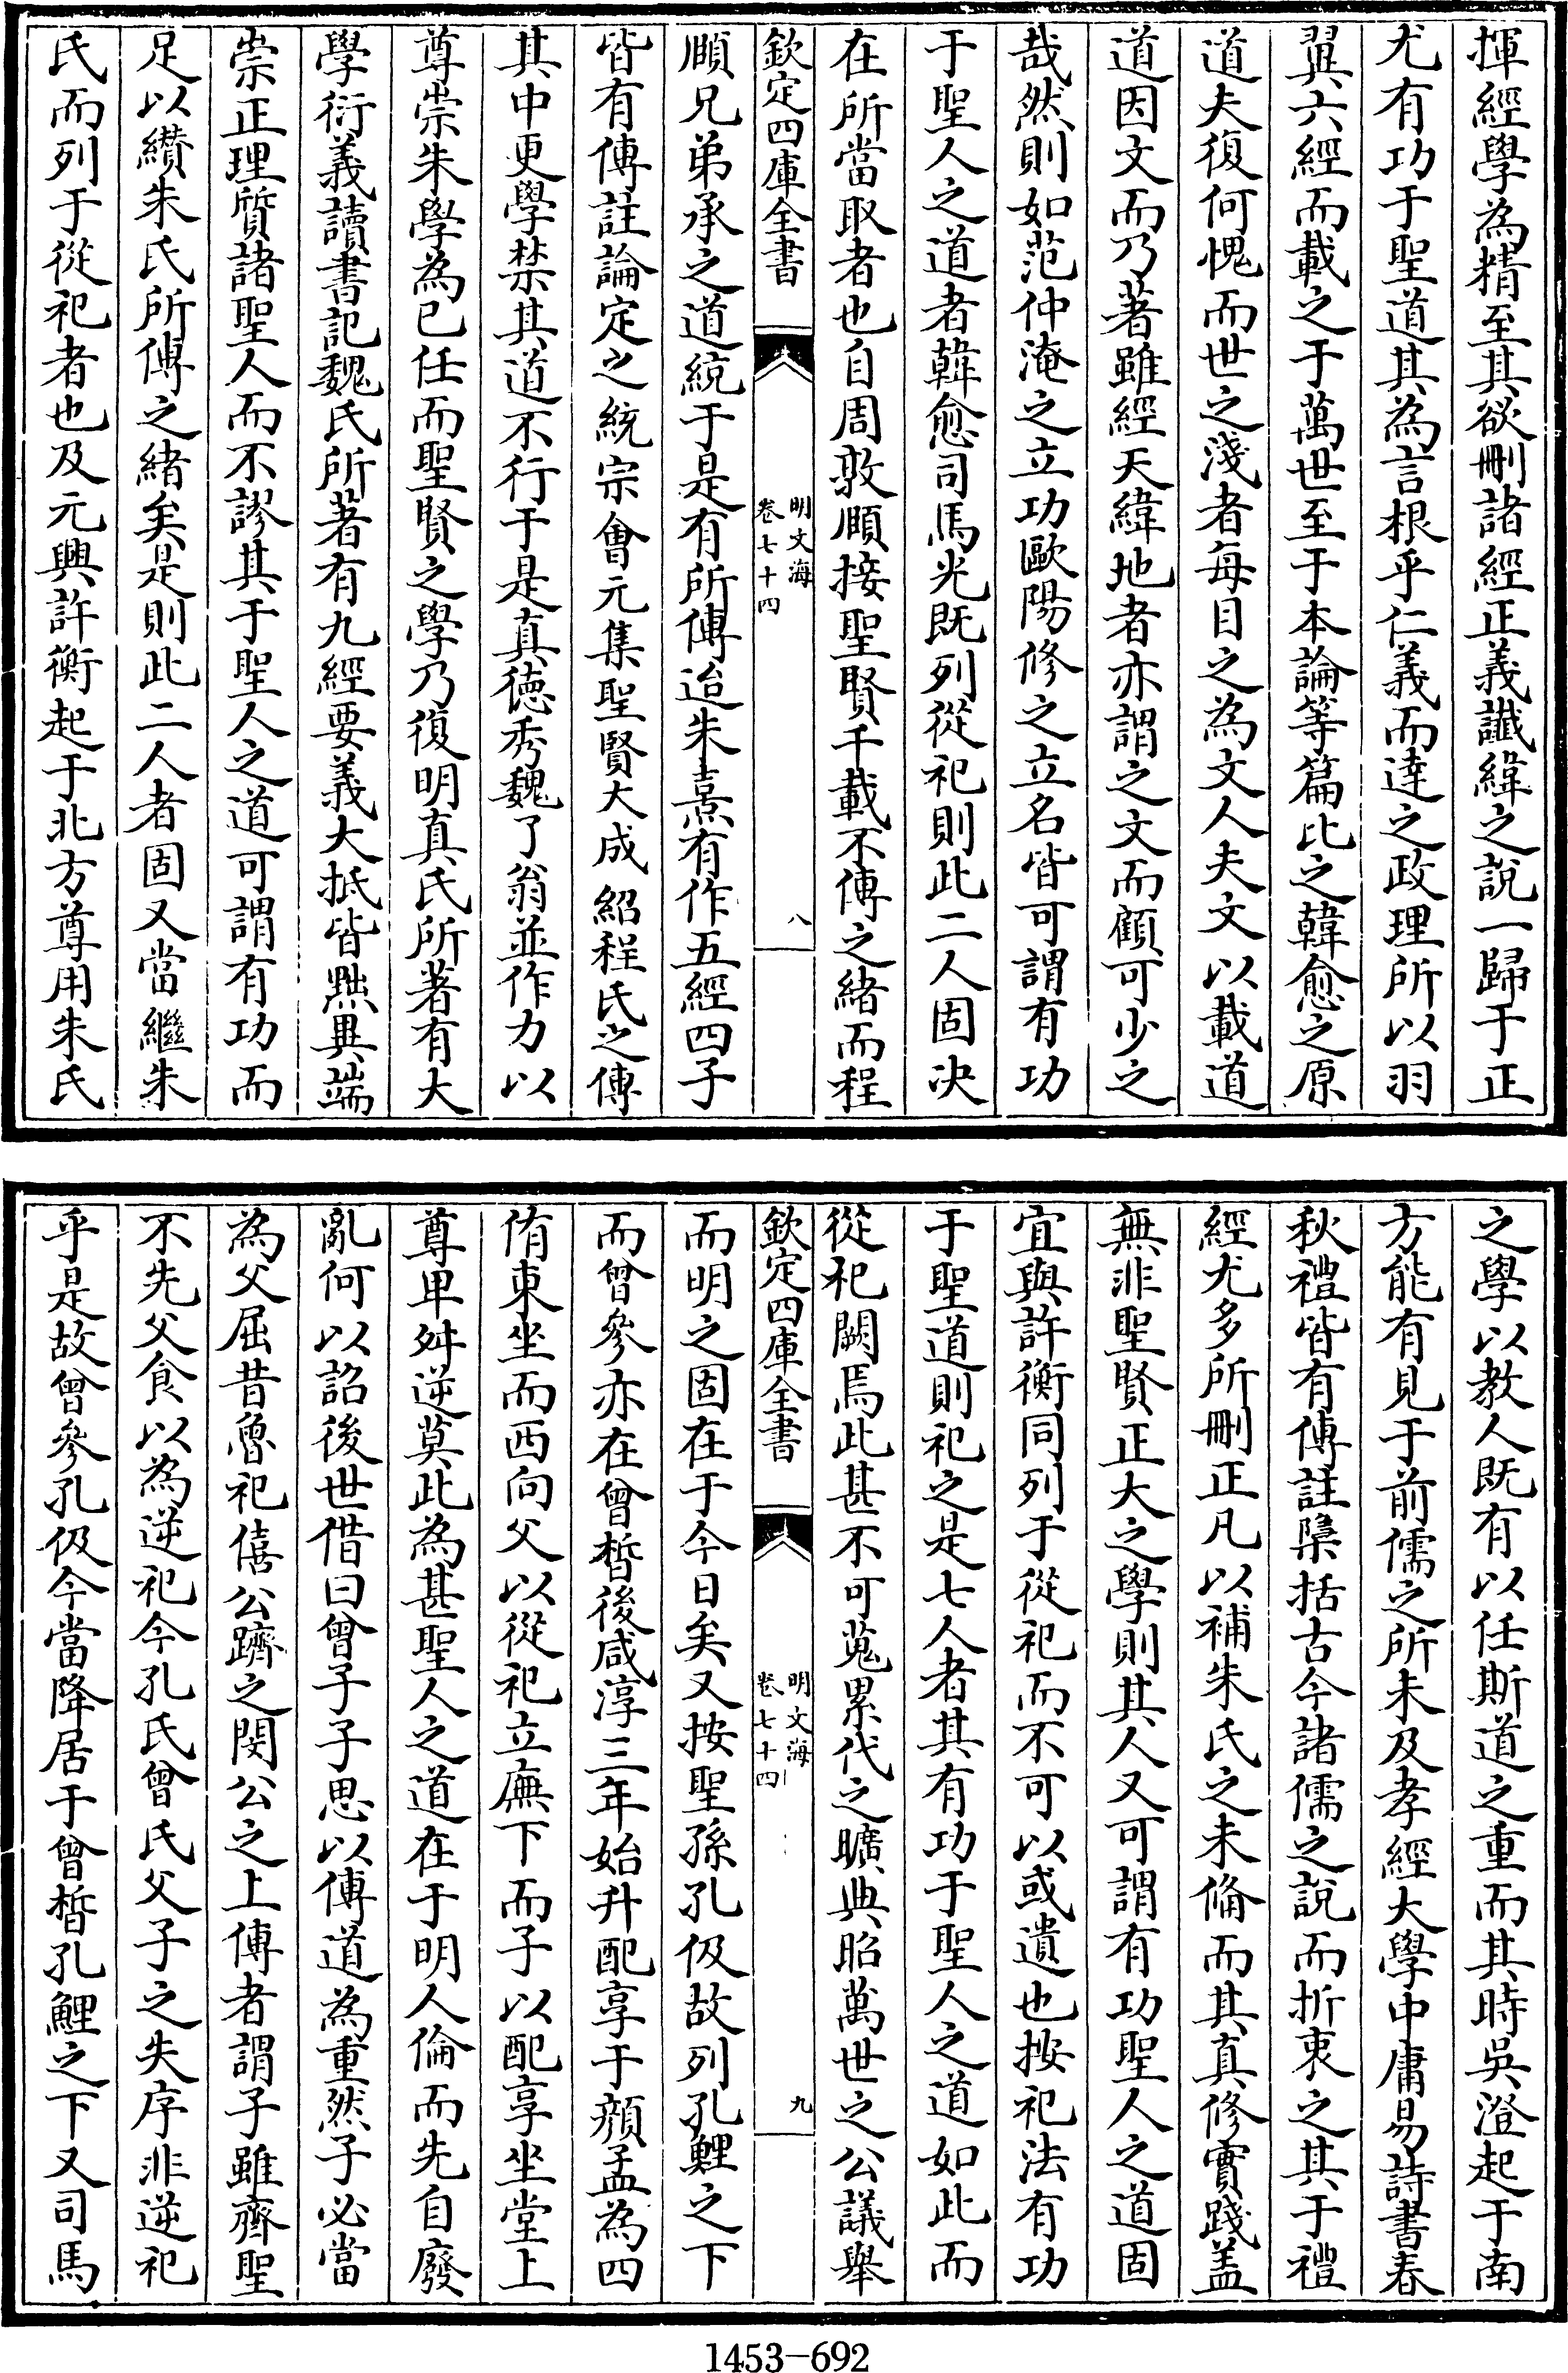 揮經學為精至其欲刪諸經正義讖緯之說一歸于正
尤有功于聖道其為言根乎仁義而達之政理所以羽
翼六經而載之于萬世至于本論等篇比之韓愈之原
道夫復何愧而世之淺者每目之為文人夫文以載道
道因文而乃著雖經天緯地者亦謂之文而顧可少之
哉然則如范仲淹之立功歐陽修之立名皆可謂有功
于聖人之道者韓愈司馬光既列從祀則此二人固決
在所當取者也自周敦頤接聖賢千載不傳之緒而程
欽定四庫全書
明文海
卷七十四
八
頤兄弟承之道統于是有所傳迨朱熹有作五經四子
皆有傳註論定之統宗會元集聖賢大成紹程氏之傳
其中更學禁其道不行于是真德秀魏了翁並作力以
尊崇朱學為已任而聖賢之學乃復明真氏所著有大
學衍義讀書記魏氏所著有九經要義大抵皆黜異端
崇正理質諸聖人而不謬其于聖人之道可謂有功而
足以纘朱氏所傳之緒矣是則此二人者固又當繼朱
氏而列于從祀者也及元興許衡起于北方尊用朱氏
之學以教人既有以任斯道之重而其時吳澄起于南
方能有見于前儒之所未及孝經大學中庸易詩書春
秋禮皆有傳註櫽括古今諸儒之說而折衷之其于禮
經尤多所刪正凡以補朱氏之未備而其真修實踐盖
無非聖賢正大之學則其人又可謂有功聖人之道固
宜與許衡同列于從祀而不可以或遺也按祀法有功
于聖道則祀之是七人者其有功于聖人之道如此而
從祀闕焉此甚不可蒐累代之曠典昭萬世之公議舉
欽定四庫全書
明文海
卷七十四
九
而明之固在于今日矣又按聖孫孔伋故列孔鯉之下
而曾參亦在曾晳後咸淳三年始升配享于顏孟為四
侑東坐而西向父以從祀立廡下而子以配享坐堂上
尊卑舛逆莫此為甚聖人之道在于明人倫而先自廢
亂何以詔後世借曰曾子子思以傳道為重然子必當
為父屈昔魯祀僖公躋之閔公之上傳者謂子雖齊聖
不先父食以為逆祀今孔氏曾氏父子之失序非逆祀
乎是故曾參孔伋今當降居于曾晳孔鯉之下又司馬
1453-692